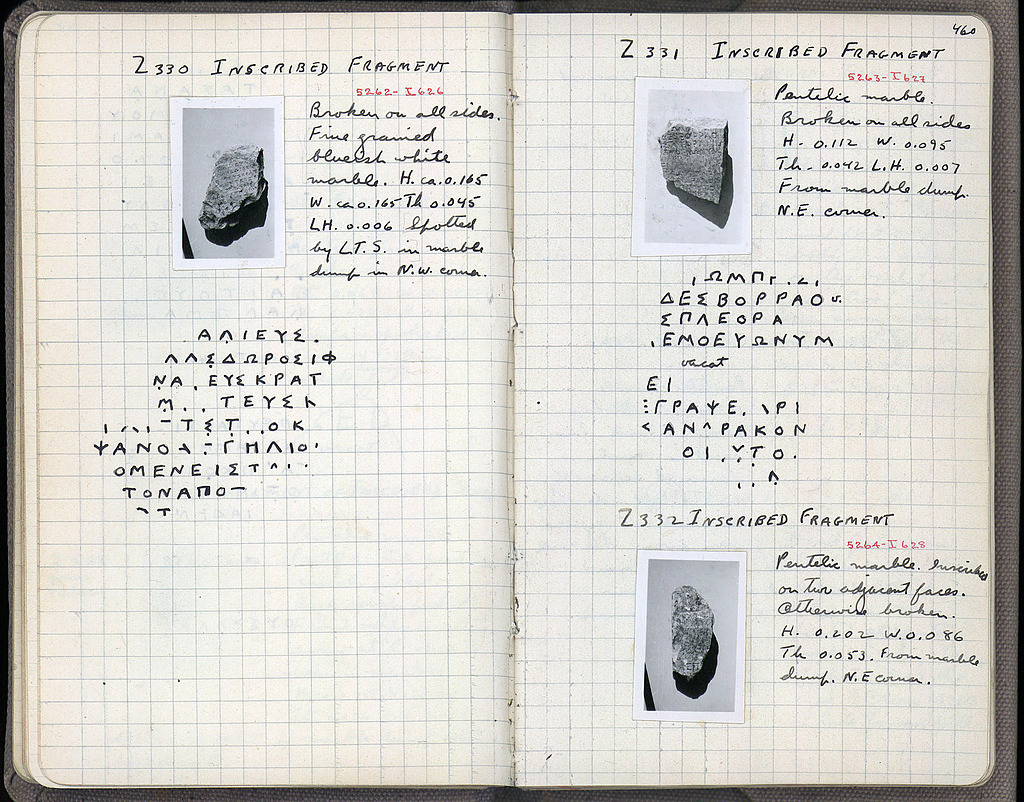 Z 330 INSCRIBED FRAGMENT
5262-I 626
Broken on all sides.
Fine grained
blueish white
marble. H. ca. 0.165
W. ca 0.165 Th 0.045
LH. 0.006 Spotted
by L.T.S. in marble
dump in N.W. corner.
ΑΛΙΕΥΣ.
ΛΛΣΔΩΡΟΣΙΦ
ΝΑ . ΕΥΣΚΡΑΤ
Μ . . ΤΕΥΣΚ
ΤΣΤ . . ΟΚ
ΨΑΝΟ
ΓΗΛΙΟ
ΟΜΕΝΕΙΣΤ
ΤΟΝΑΠΟ
Τ
460
Z 331 INSCRIBED FRAGMENT
5263-I 627
Pentelic marble.
Broken on all sides
H. 0.112 W. 0.095
Th. 0.042 L.H. 0.007
From marble dump.
N.E. corner.
ΩΜΠ
ΔΕΣΒΟΡΡΑΟ
ΣΠΛΕΟΡΑ
. ΕΜΟΕΥΩΝΥΜ
vacat
ΕΙ
ΓΡΑΨΕ . ΡΙ
ΑΝ ΡΑΚΟΝ
ΟΙ . ΥΤΟ .
Z 332 INSCRIBED FRAGMENT
5264-I 628
Pentelic marble. Inscribed
on two adjacent faces.
Otherwise broken.
H. 0.202 W. 0.086
Th 0.053. From marble
dump. N.E corner.